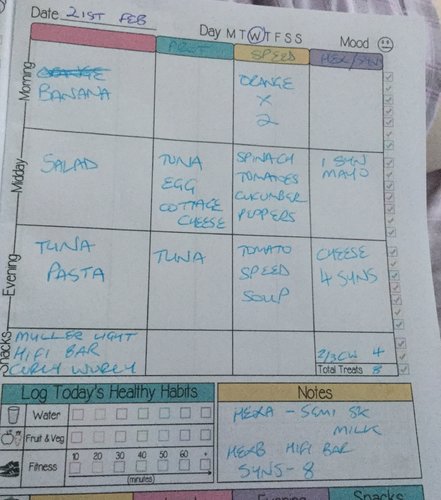 Date 21ST FEB
Day M T W T F S S
Mood
PROT
SPEED
HEX/SYN
Morning
ORANGE
BANANA
ORANGE
X
2
Midday
SALAD
TUNA
EGG
COTTAGE
CHEESE
SPINACH
TOMATOES
CUCUMBER
PEPPERS
1 SYN
MAYO
Evening
TUNA
PASTA
TUNA
TOMATO
SPEED
SOUP
CHEESE
4 SYNS
Snacks
MULLER LIGHT
HIFI BAR
CURLY WURLY
2/3 CW 4
Total Treats 8
Log Today's Healthy Habits
Water
Fruit & Veg
Fitness
10 20 30 40 50 60 +
(minutes)
Notes
HEXA - SEMI SK
MILK
HEXB HIFI BAR
SYNS - 8
Evening
Snacks